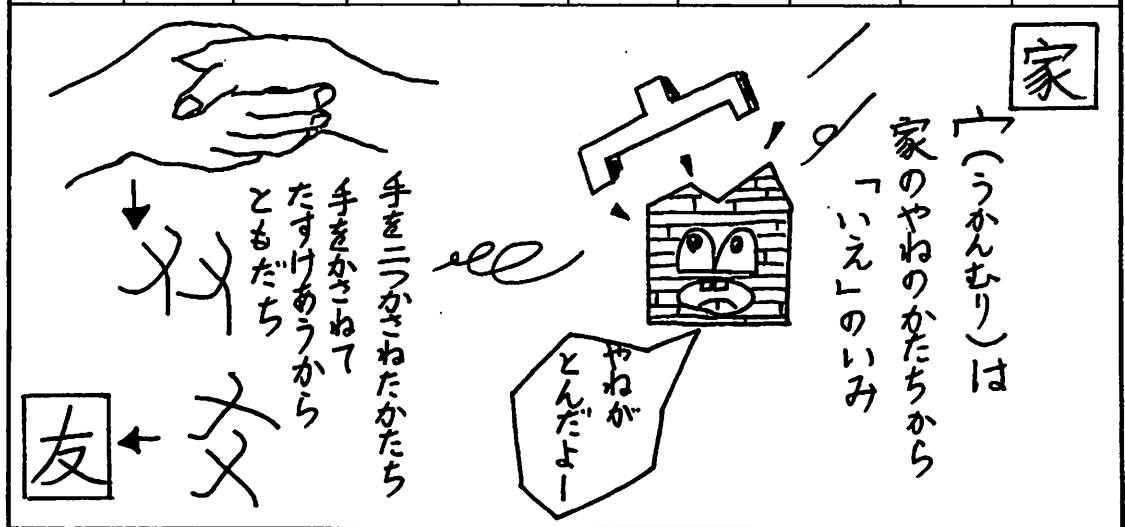 家
宀(うかんむり)は
家のやねのかたちから
「いえ」のいみ
やねが
とんだよー
手を二つかさねたかたち
手をかさねて
たすけあうから
ともだち
友